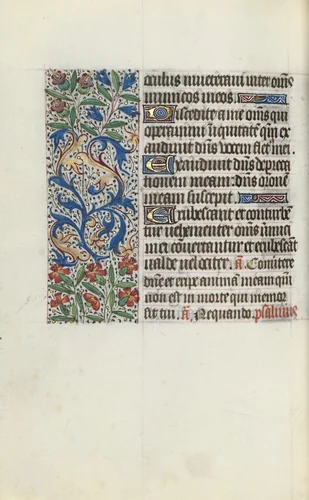 culus inveteravi inter om̄s
inimicos meos.
Discedite a me om̄s qui
operamini iniquitatē qm̄ ex
audivit dn̄s vocem flet9 mei.
Exaudivit dn̄s depreca
tionem meam: dn̄s or̄onē
meam suscepit.
Erubescant et conturbē
tur vehementer om̄s inimici
mei convertantur et erubescāt
valde velociter. a. Convertere
domine et eripe animā meam qm̄
non est in morte qui memor
sit tui. a. Nequando. psalmus